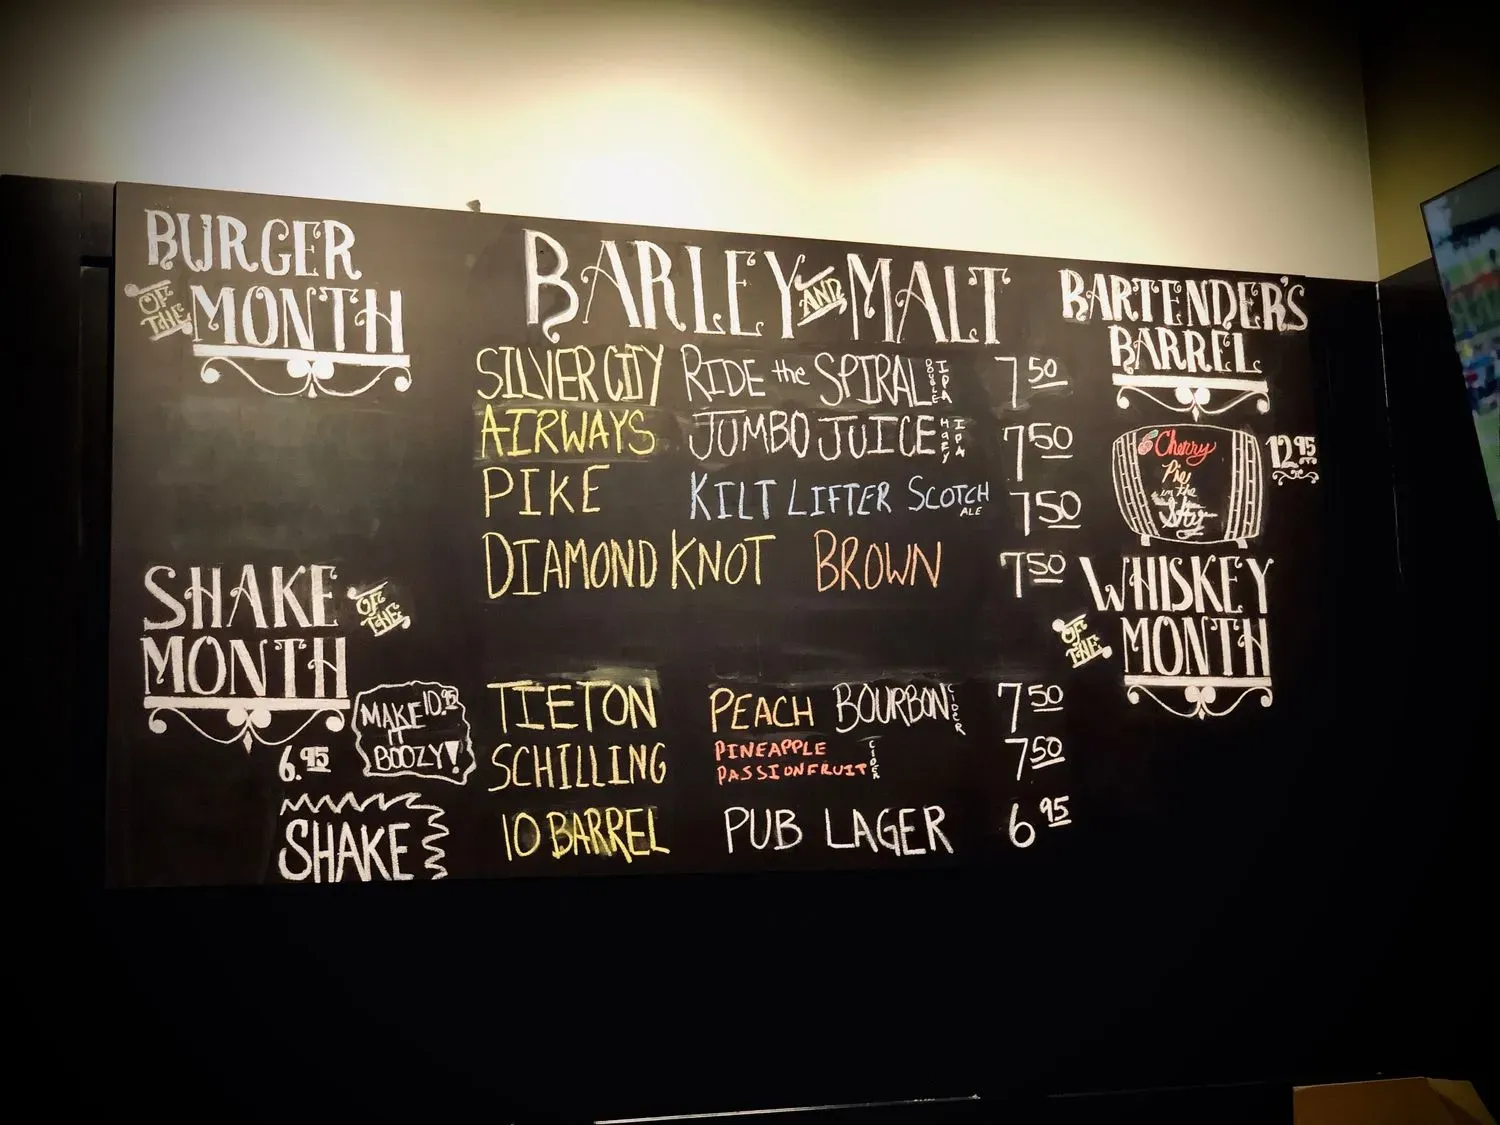 BURGER
OF THE
MONTH
SHAKE OF THE
MONTH
6.95
MAKE 10.95
IT
BOOZY!
SHAKE
BARLEY AND MALT
SILVER CITY RIDE the SPIRAL DOUBLE IPA 7 50
AIRWAYS JUMBO JUICE HAZY IPA 7 50
PIKE KILT LIFTER SCOTCH ALE 7 50
DIAMOND KNOT BROWN 7 50
TIETON PEACH BOURBON CIDER 7 50
SCHILLING PINEAPPLE
PASSIONFRUIT CIDER 7 50
10 BARREL PUB LAGER 6 95
BARTENDER'S
BARREL
Cherry
Pie
in the
Sky
12 95
WHISKEY
OF THE
MONTH